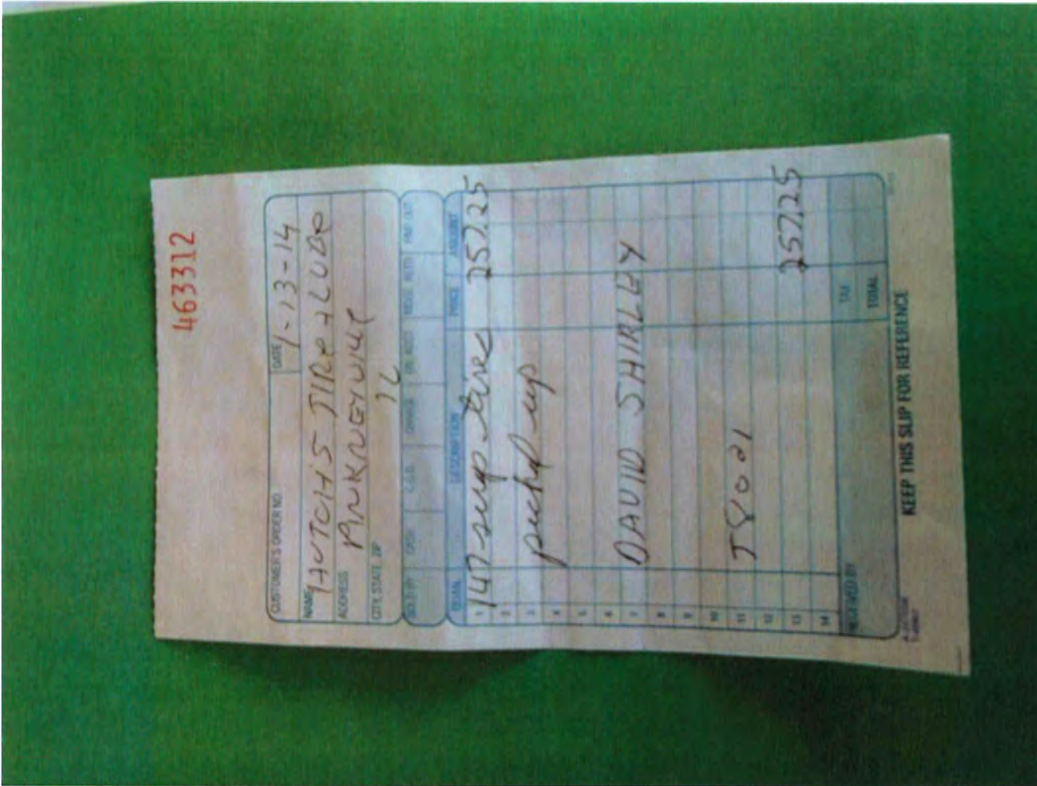 463312
CUSTOMER'S ORDER NO. DATE 1-13-14
NAME HUTCH'S TIRE & LUBE
ADDRESS PINKNEYVILLE
CITY, STATE, ZIP IL
SOLD BY CASH C.O.D. CHARGE ON ACCT. MDSE. RETD. PAID OUT
QUAN. DESCRIPTION PRICE AMOUNT
1 147 scrap tires 257.25
2
3 picked up
4
5
6
7 DAVID SHIRLEY
8
9
10
11 T8021
12
13 257.25
14
TAX
RECEIVED BY TOTAL
KEEP THIS SLIP FOR REFERENCE